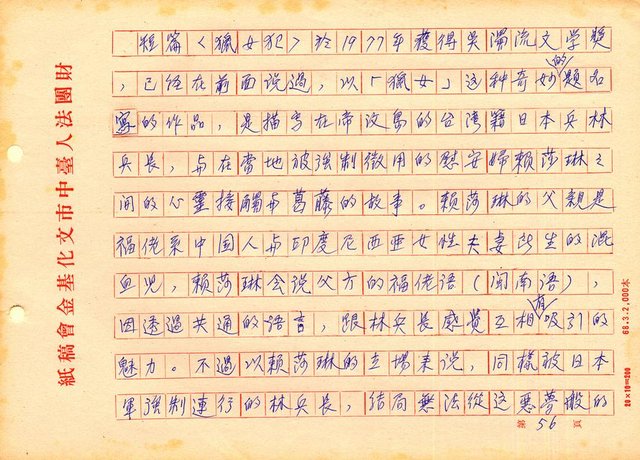 短篇〈獵女犯〉於1977年獲得吳濁流文学獎
，已经在前面说過，以「獵女」这种奇妙的題名
寫的作品，是描写在帝汶島的台湾籍日本兵林
兵長，与在當地被強制徵用的慰安婦賴莎琳之
间的心靈接觸与葛藤的故事。賴莎琳的父親是
福佬系中国人与印度尼西亜女性夫妻所生的混
血児，賴莎琳会说父方的福佬语（闽南语），
因透過共通的语言，跟林兵長感覚互相有吸引的
魅力。不過以賴莎琳的立場来说，同樣被日本
軍強制連行的林兵長，结局無法從这悪夢般的
第 56 頁
財團法人臺中市文化基金會稿紙
68.3.2,000本
20×10=200